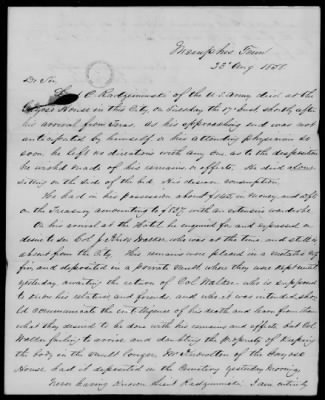 Memphis Tenn
23d Aug 1858
Dr Sir
C Radziminski of the U S Army died at the
Gayoso House in this City, on Tuesday the 17th Inst shortly after
his arrival from Texas. As his approaching end was not
anticipated by himself or his attending physician so
soon, he left no directions with any one as to the disposition
he wished made of his remains or effects. He died alone
sitting on the side of the bed. His disease consumption.
He had in his possession about in money and dft
on the Treasury amounting to with an extensive wardrobe
On his arrival at the Hotel he enquired for and expressed a
desire to see Col J Knox Walker who was at the time and still is
absent from the City. His remains were placed in a
and deposited in a private vault where they were kept until
yesterday awaiting the return of Col Walker who is supposed
to know his relatives and friends and who it was intended should
communicate the intelligence of his death and learn from them
what they desired to be done with his remains and effects, but Col
Walker failing to arrive and doubting the propriety of keeping
the body in the vault longer Mr of the Gayoso
House had it deposited in the Cemetery yesterday evening.
Never having known Lieut Radziminski I am entirely